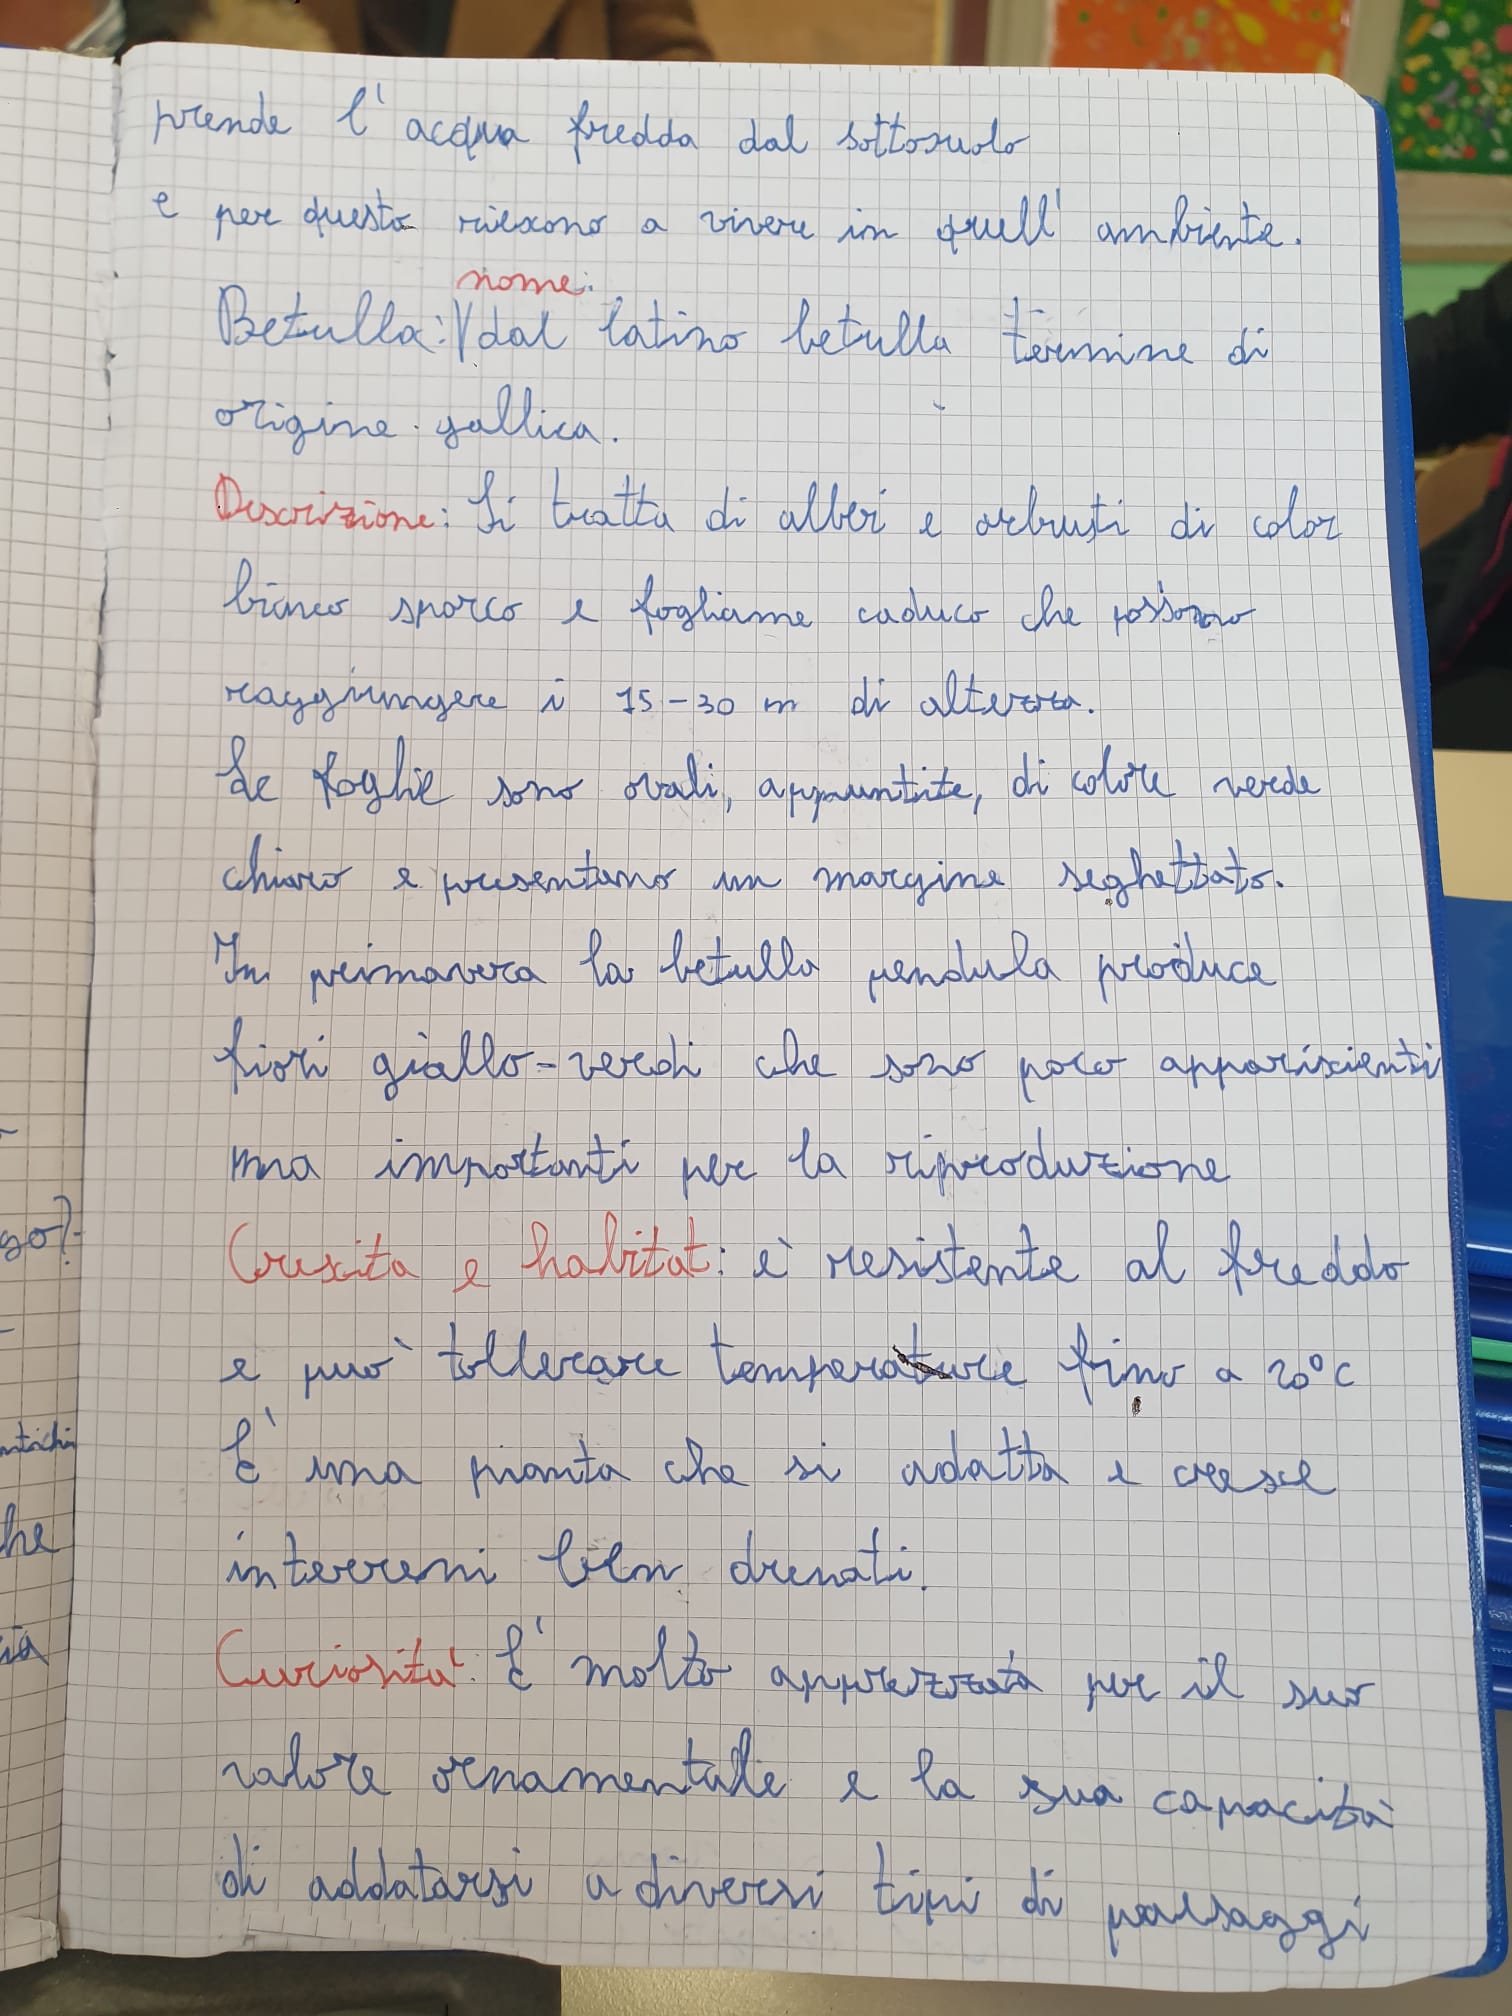 prende l'acqua fredda dal sottosuolo
e per questo riescono a vivere in quell'ambiente.
nome:
Betulla: dal latino betulla termine di
origine gallica.
Descrizione: Si tratta di alberi e arbusti di color
bianco sporco e fogliame caduco che possono
raggiungere i 15-30 m di altezza.
Le foglie sono ovali, appuntite, di colore verde
chiaro e presentano un margine seghettato.
In primavera la betulla pendula produce
fiori giallo-verdi che sono poco appariscienti
ma importanti per la riproduzione
Crescita e habitat: è resistente al freddo
e può tollerare temperature fino a 20°C
E' una pianta che si adatta e cresce
interreni ben drenati.
Curiosità: E' molto apprezzata per il suo
valore ornamentale e la sua capacità
di addatarsi a diversi tipi di paesaggi
go?
ntichi
he
ia